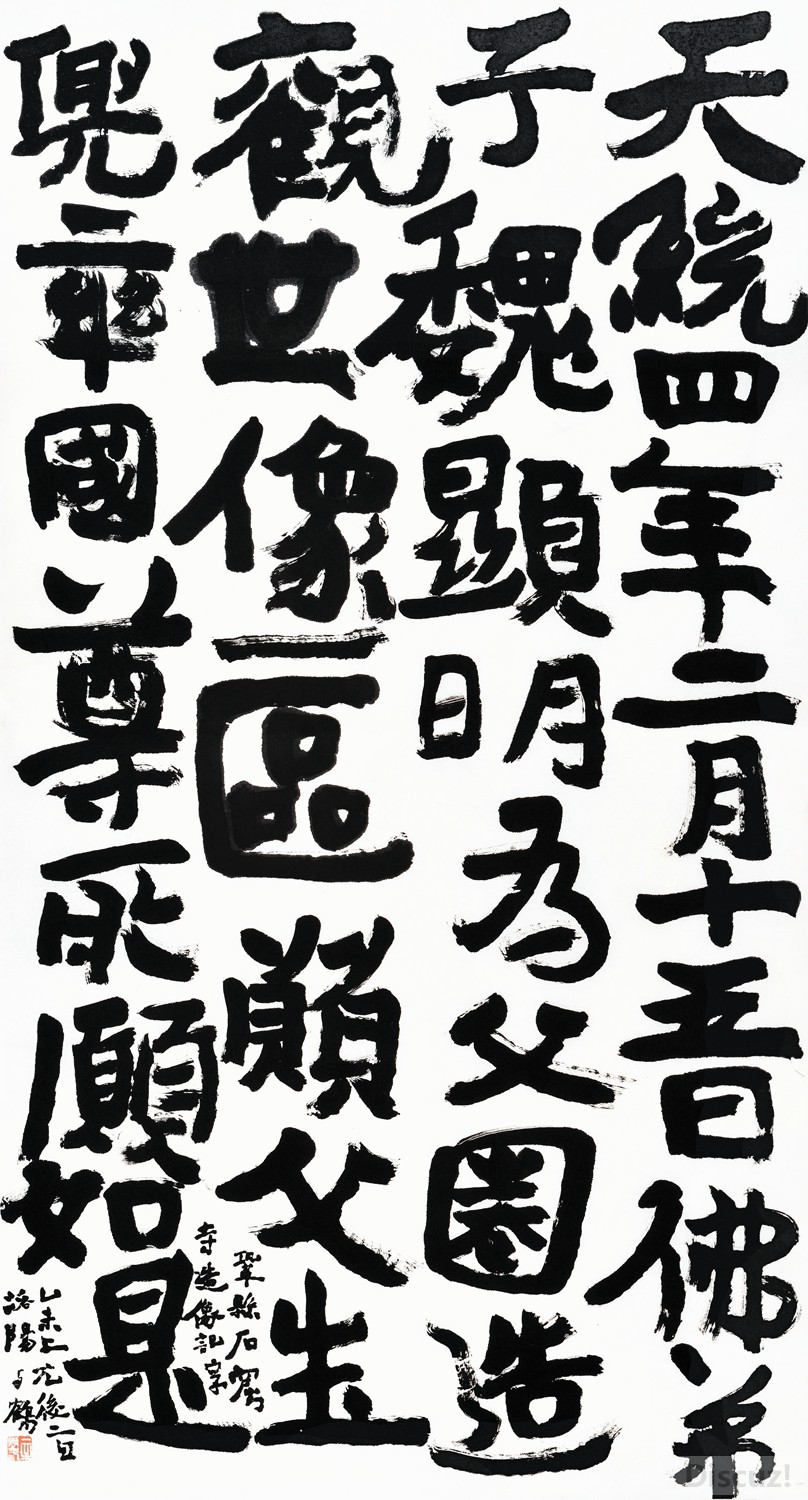 天統四年二月十五日佛弟
子魏顯明為父圈造
觀世像一區願父生
兜率國尊所願如是
鞏縣石窟
寺造像記字
乙未上元後二日
洛陽鶴
Discuz!